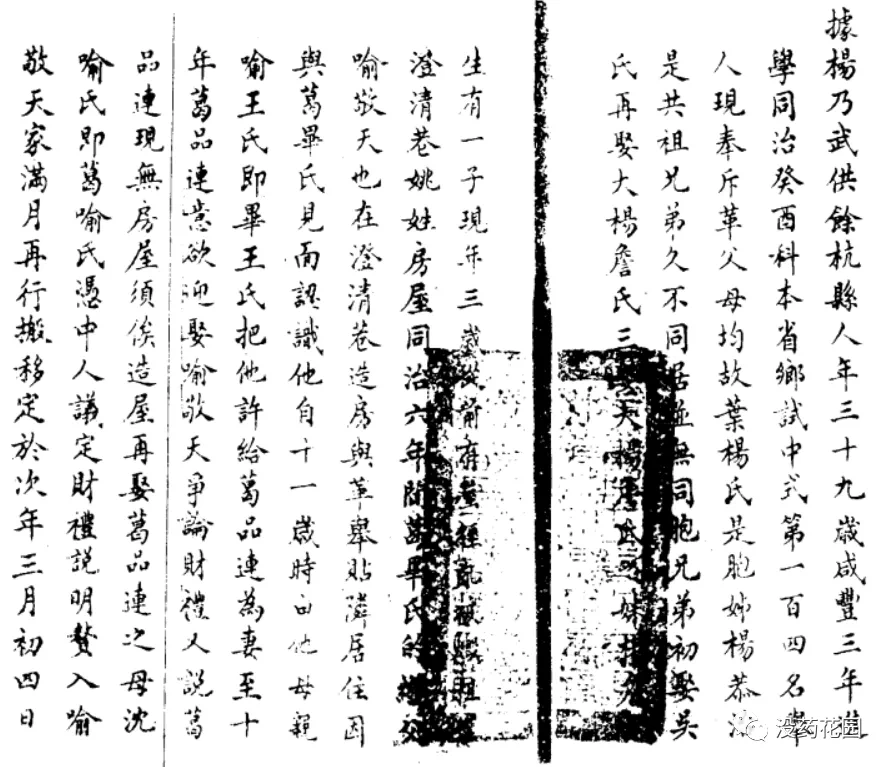 據楊乃武供餘杭縣人年三十九歲咸豐三年進
學同治癸酉科本省鄉試中式第一百四名舉
人現奉斥革父母均故葉楊氏是胞姊楊恭
是共祖兄弟久不同居並無同胞兄弟初娶吳
氏再娶大楊詹氏三娶
生有一子現年三歲
澄清巷姚姓房屋同治六年間葛畢氏的繼父
喻敬天也在澄清巷造房與革舉貼隣居住因
與葛畢氏見面認識他自十一歲時由他母親
喻王氏即畢王氏把他許給葛品連為妻至十
年葛品連意欲迎娶喻敬天爭論財禮又說葛
品連現無房屋須俟造屋再娶葛品連之母沈
喻氏即葛喻氏憑中人議定財禮說明贅入喻
敬天家滿月再行搬移定於次年三月初四日
没药花园